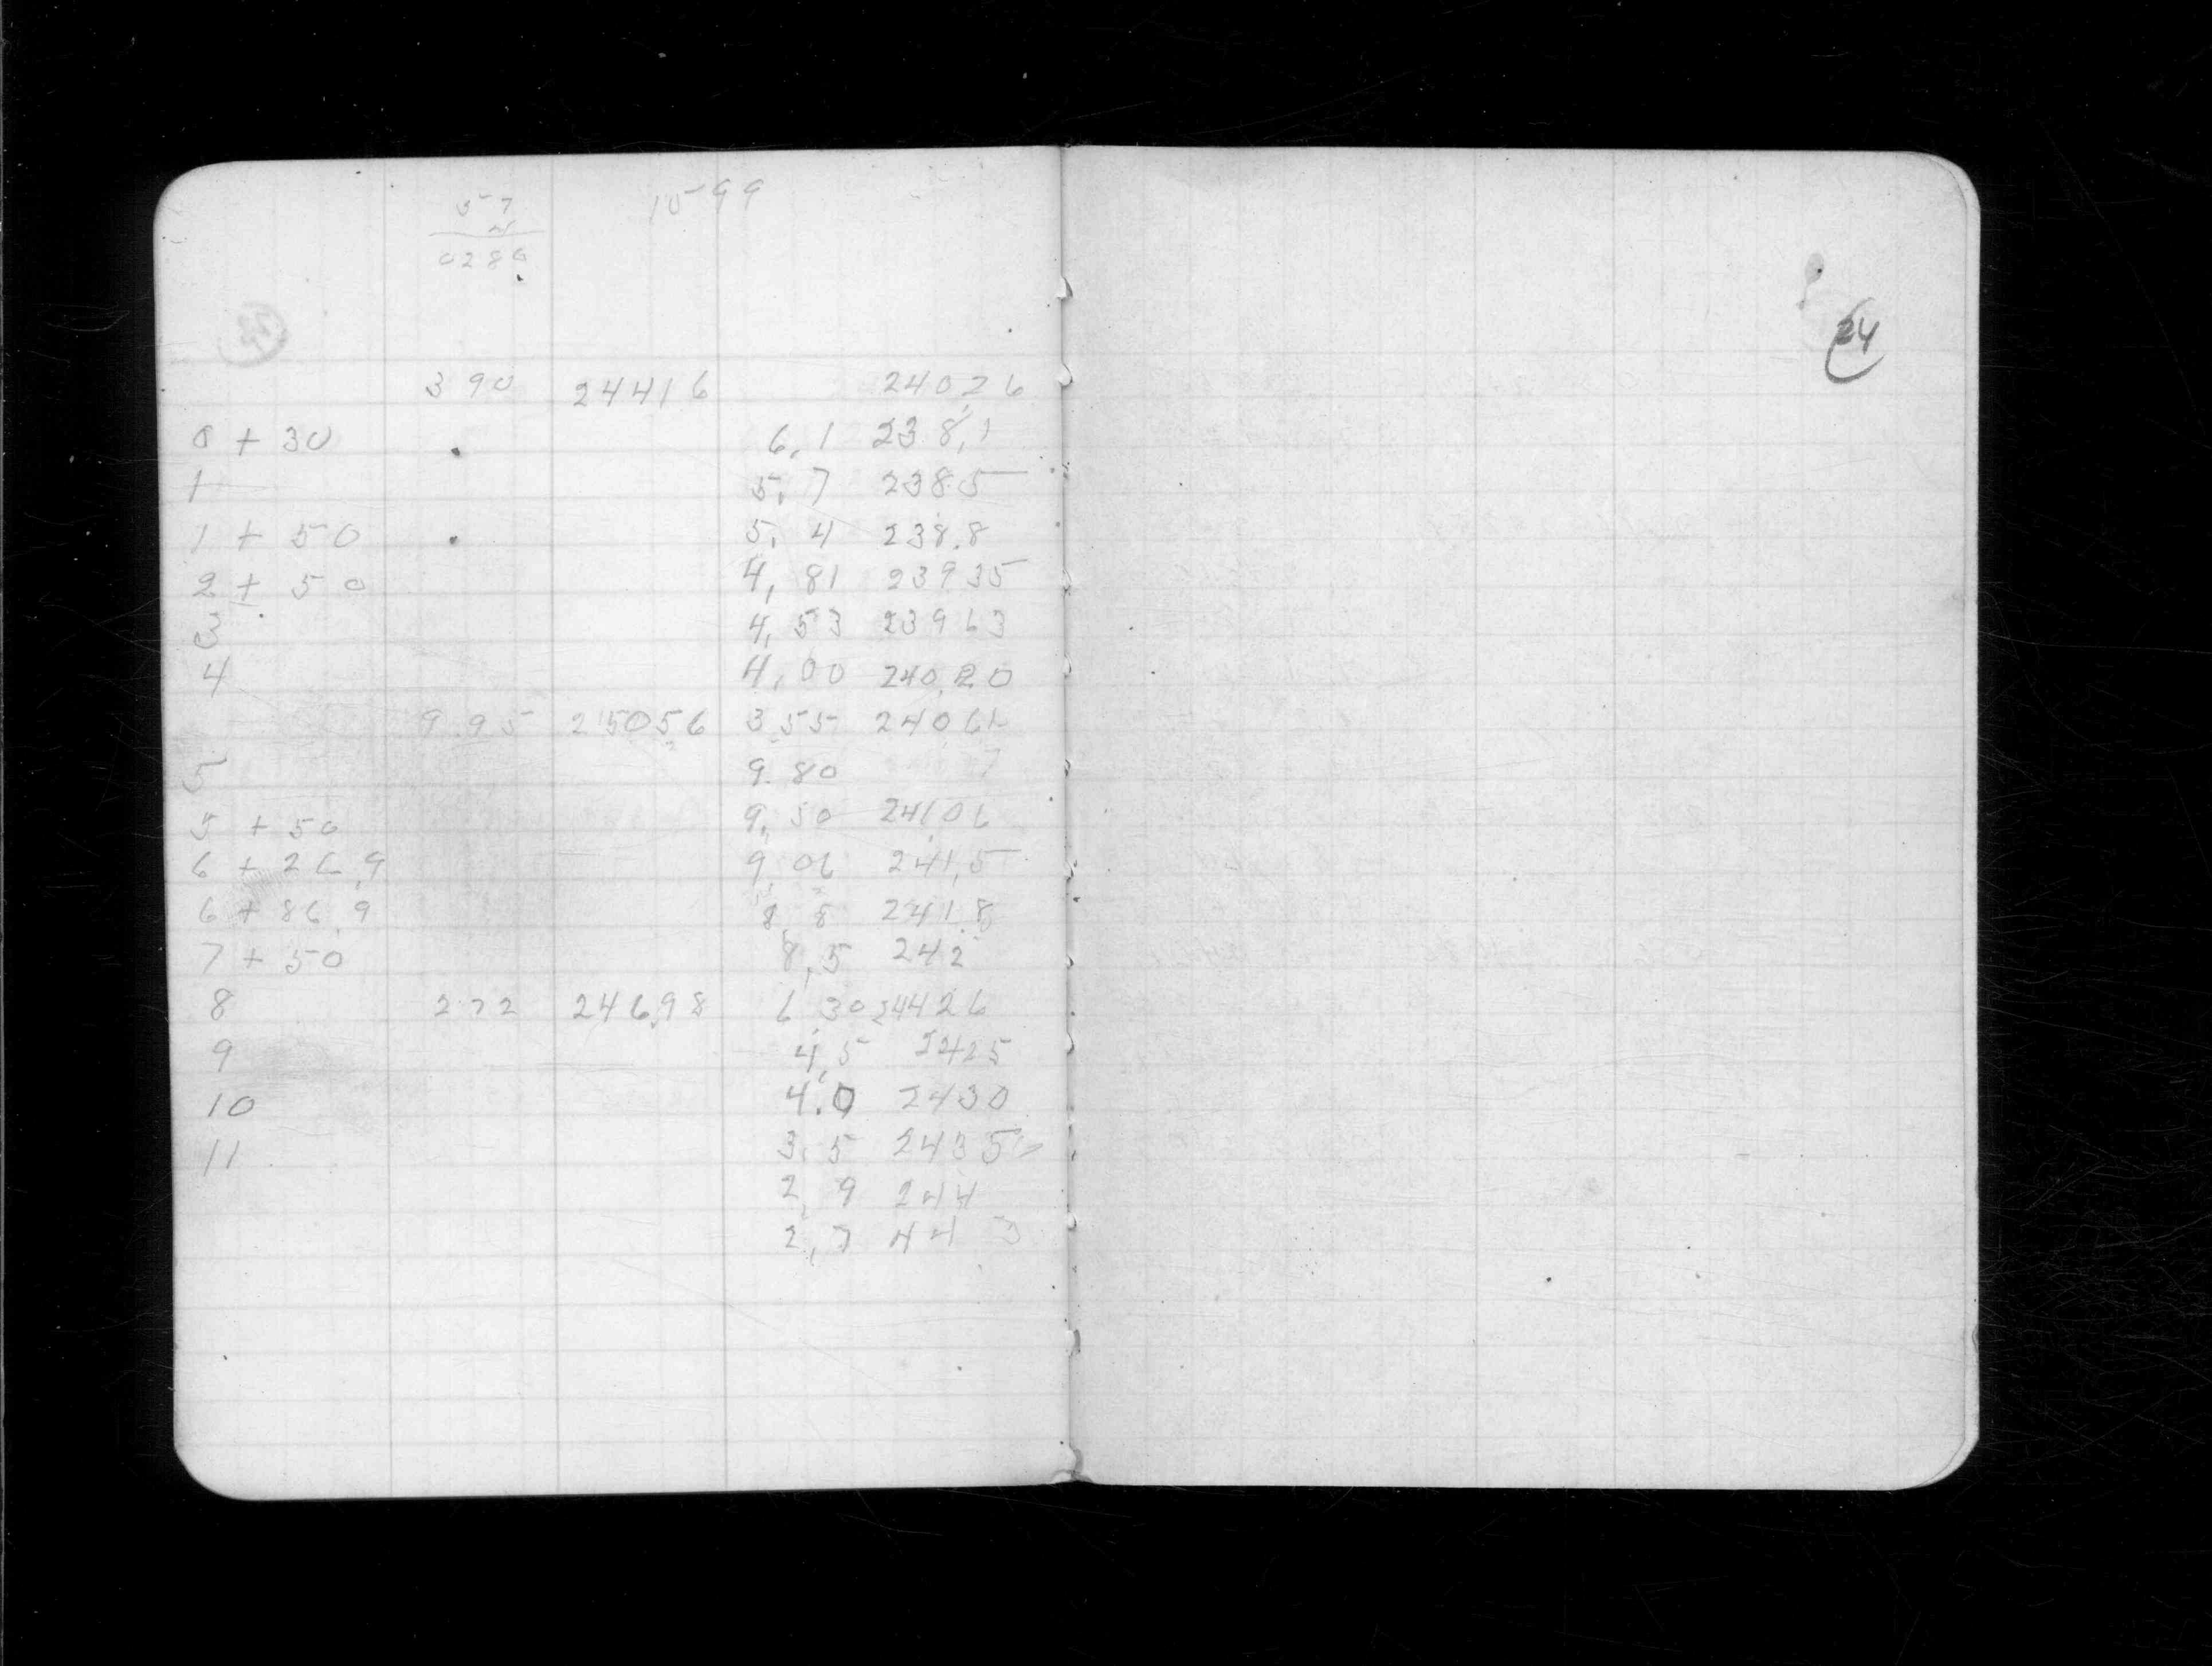 57 1599
0280
24
390 24416 24026
0 + 30 6,1 238,1
1 5,7 238.5
1 + 50 5,4 238.8
2 + 50 4,81 23935
3 4,53 23963
4 4,00 240.20
9.95 25056 355 24061
5 9.80
5 + 50 9,50 24106
6 + 26.9 9,06 241,5
6 + 86.9 8,8 241.8
7 + 50 8,5 242
8 272 246.98 6 30 24426
9 4,5 2425
10 4.0 2430
11 3,5 2435
2,9 244
2,7 44 3